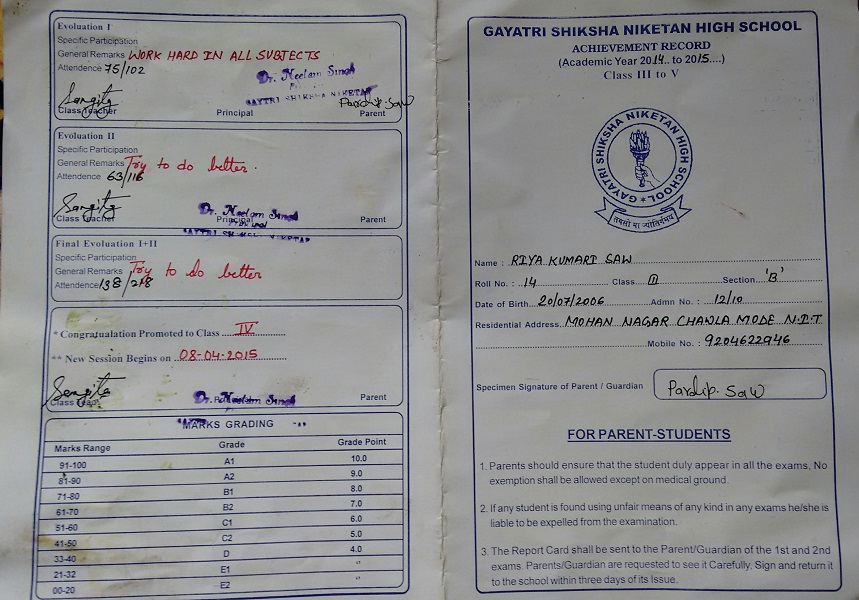 Evaluation I
Specific Participation
General Remarks WORK HARD IN ALL SUBJECTS
Attendence 75/102
Dr. Neelam Singh
Sangita
Pardip Saw
Class Teacher Principal Parent
Evaluation II
Specific Participation
General Remarks Try to do better.
Attendence 63/116
Sangita
Dr. Neelam Singh
Class Teacher Principal Parent
Principal
Final Evaluation I+II
Specific Participation
General Remarks Try to do better
Attendence 138/218
* Congratualation Promoted to Class IV
** New Session Begins on 08-04-2015
Sangita
Class Teac Dr. Neelam Singh Parent
MARKS GRADING
Marks Range Grade Grade Point
91-100 A1 10.0
81-90 A2 9.0
71-80 B1 8.0
61-70 B2 7.0
51-60 C1 6.0
41-50 C2 5.0
33-40 D 4.0
21-32 E1 "
00-20 E2 "
GAYATRI SHIKSHA NIKETAN HIGH SCHOOL
ACHIEVEMENT RECORD
(Academic Year 2014.. to 2015....)
Class III to V
GAYATRI SHIKSHA NIKETAN HIGH SCHOOL
तमसो मा ज्योतिर्गमय
Name : RIYA KUMARI SAW
Roll No. : 14 Class III Section 'B'
Date of Birth 20/07/2006 Admn No. : 12/10
Residential Address MOHAN NAGAR CHANLA MODE N.I.T
Mobile No. : 9204622946
Specimen Signature of Parent / Guardian Pardip. Saw
FOR PARENT-STUDENTS
1. Parents should ensure that the student duly appear in all the exams, No
exemption shall be allowed except on medical ground.
2. If any student is found using unfair means of any kind in any exams he/she is
liable to be expelled from the examination.
3 The Report Card shall be sent to the Parent/Guardian of the 1st and 2nd
exams. Parents/Guardian are requested to see it Carefully, Sign and return it
to the school within three days of its Issue.